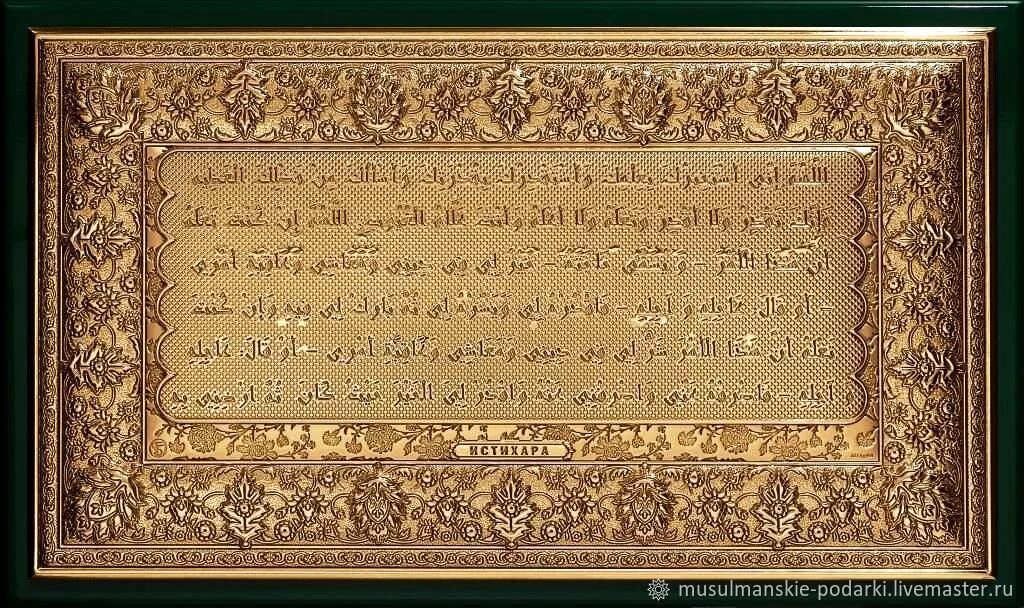 اللَّهُمَّ إِنِّي أَسْتَخِيرُكَ بِعِلْمِكَ وَأَسْتَقْدِرُكَ بِقُدْرَتِكَ وَأَسْأَلُكَ مِنْ فَضْلِكَ الْعَظِيمِ
فَإِنَّكَ تَقْدِرُ وَلَا أَقْدِرُ وَتَعْلَمُ وَلَا أَعْلَمُ وَأَنْتَ عَلَّامُ الْغُيُوبِ اللَّهُمَّ إِنْ كُنْتَ تَعْلَمُ
أَنَّ هَذَا الْأَمْرَ – – خَيْرٌ لِي فِي دِينِي وَمَعَاشِي وَعَاقِبَةِ أَمْرِي
– أَوْ قَالَ: عَاجِلِهِ وَ آجِلِهِ – فَاقْدُرْهُ لِي وَيَسِّرْهُ لِي ثُمَّ بَارِكْ لِي فِيهِ وَإِنْ كُنْتَ
تَعْلَمُ أَنَّ هَذَا الْأَمْرَ شَرٌّ لِي فِي دِينِي وَمَعَاشِي وَعَاقِبَةِ أَمْرِي – أَوْ قَالَ: عَاجِلِهِ
آجِلِهِ – فَاصْرِفْهُ عَنِّي وَاصْرِفْنِي عَنْهُ وَاقْدُرْ لِيَ الْخَيْرَ حَيْثُ كَانَ ثُمَّ ارْضِنِي بِهِ
ИСТИХАРА
musulmanskie-podarki.livemaster.ru